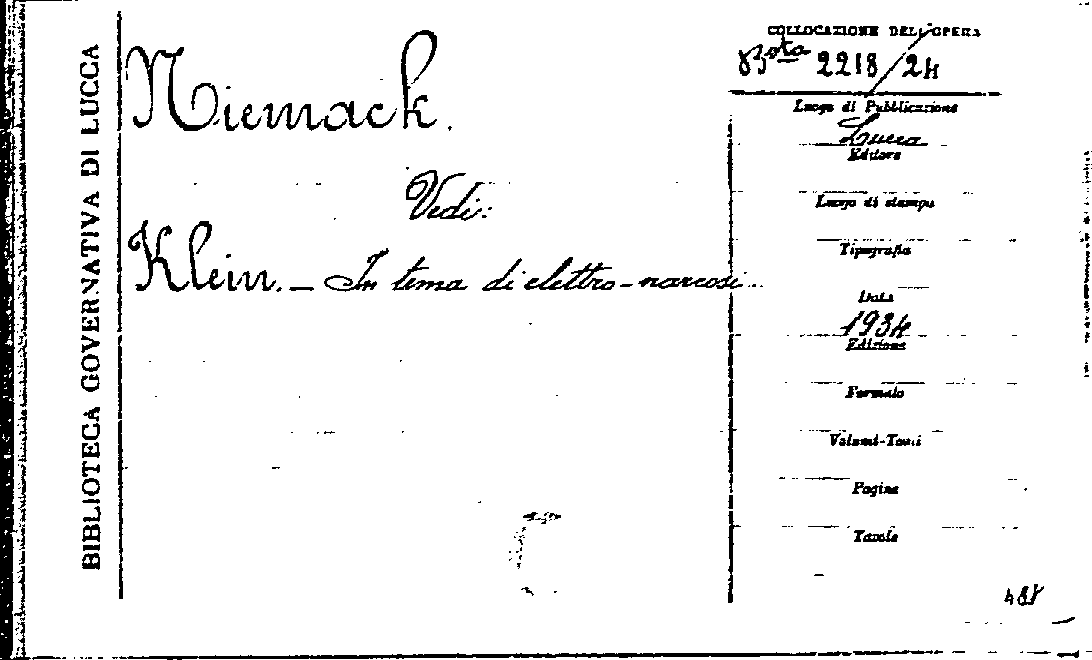 BIBLIOTECA GOVERNATIVA DI LUCCA
Niemack.
Vedi:
Klein. – In tema di elettro-narcosi
COLLOCAZIONE DELL'OPERA
Bsta 2218/24
Luogo di Pubblicazione
Lucca
Editore
Luogo di stampa
Tipografia
Data
1934
Edizione
Formato
Volumi-Tomi
Pagine
Tavole